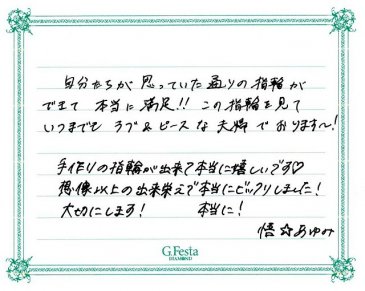 自分たちが思っていた通りの指輪が
できて 本当に満足!! この指輪を見て
いつまでも ラブ&ピースな夫婦でおります〜!
手作りの指輪が出来て本当に嬉しいです♡
想像以上の出来栄えで本当にビックリしました!
大切にします! 本当に!
悟☆あゆみ
G.Festa
DIAMOND